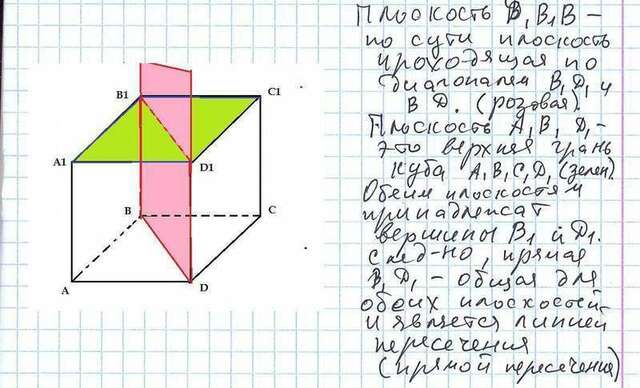 B1
C1
A1
D1
B
C
A
D
Плоскость D, B, B –
по сути плоскость
проходящая по
диагоналям B, D, и
B D. (розовая).
Плоскость A, B, D, –
это верхняя грань
куба A, B, C, D, (зелен).
Обеим плоскостям
принадлежат
вершины B1 и D1.
след-но, прямая
B, D, – общая для
обеих плоскостей
и является линией
пересечения
(прямой пересечения)